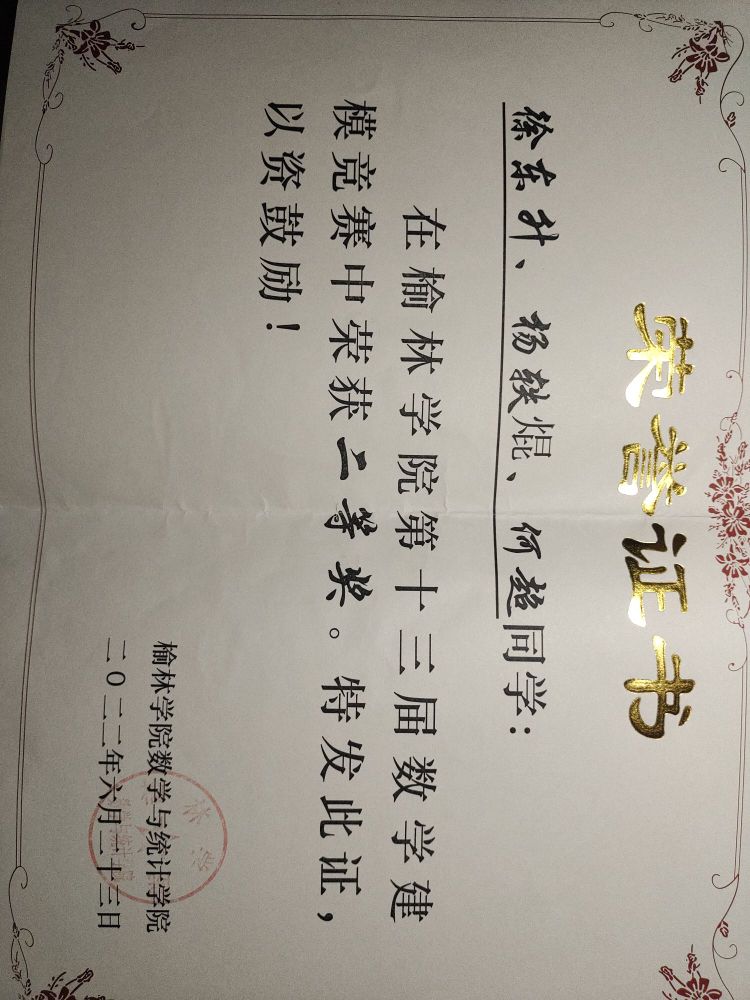 荣誉证书
徐东升、杨轶焜、何超同学：
在榆林学院第十三届数学建
模竞赛中荣获二等奖。特发此证，
以资鼓励！
榆林学院数学与统计学院
二0二二年六月二十三日